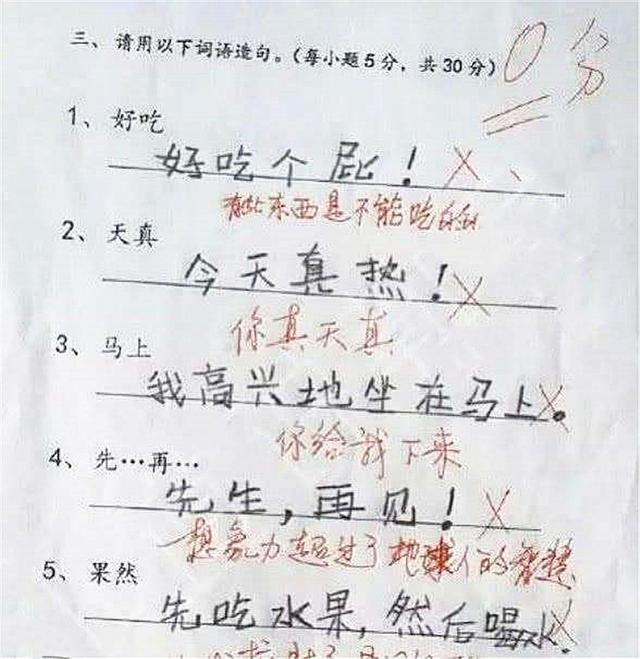 三、请用以下词语造句。(每小题5分，共30分) 0分
1、好吃
好吃个屁！
有些东西是不能吃的
2、天真
今天真热！
你真天真
3、马上
我高兴地坐在马上。
你给我下来
4、先…再…
先生，再见！
想象力超过了地球人的智慧
5、果然
先吃水果，然后喝水。